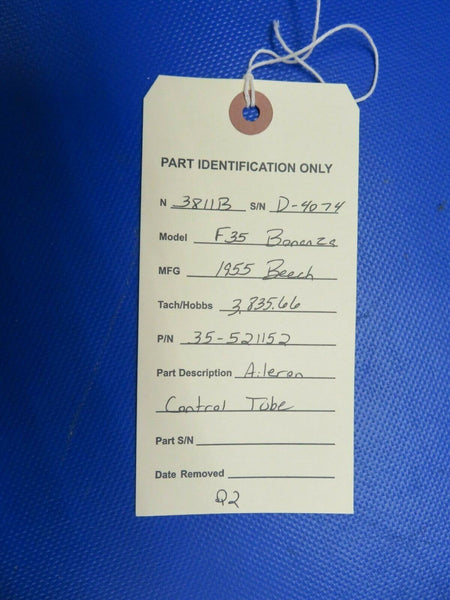 PART IDENTIFICATION ONLY
N 3811B S/N D-4074
Model F35 Bonanza
MFG 1955 Beech
Tach/Hobbs 3,835.66
P/N 35-521152
Part Description Aileron
Control Tube
Part S/N
Date Removed
Q2